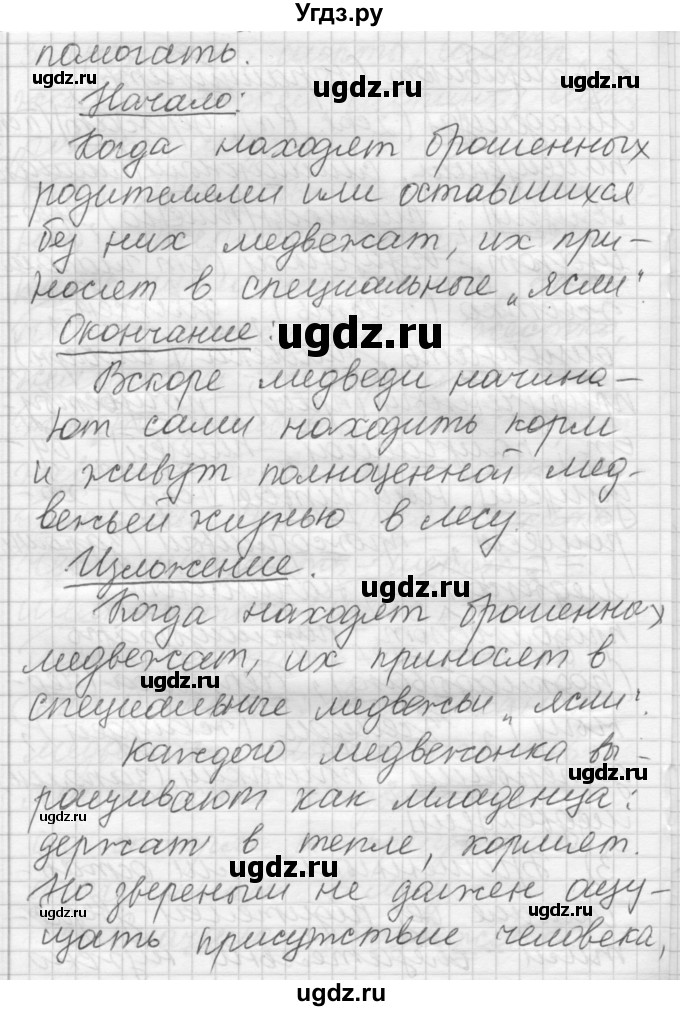 Угдз.ру
помогать.
ugdz.ru ugdz.ru ugdz.ru
Начало:
Когда находят брошенных
ugdz.ru
родителями или оставшихся
без них медвежат, их при-
носят в специальные „ясли“.
ugdz.ru
Окончание:
Вскоре медведи начина-
ют сами находить корм
и живут полноценной мед-
вежьей жизнью в лесу.
Изложение.
ugdz.ru
Когда находят брошенных
медвежат, их приносят в
ugdz.ru
специальные медвежьи „ясли“.
Каждого медвежонка вы-
ugdz.ru
ращивают как младенца:
ugdz.ru
держат в тепле, кормят.
ugdz.ru
Но звереныш не должен ощу-
ugdz.ru ugdz.ru
щать присутствие человека,
ugdz.ru